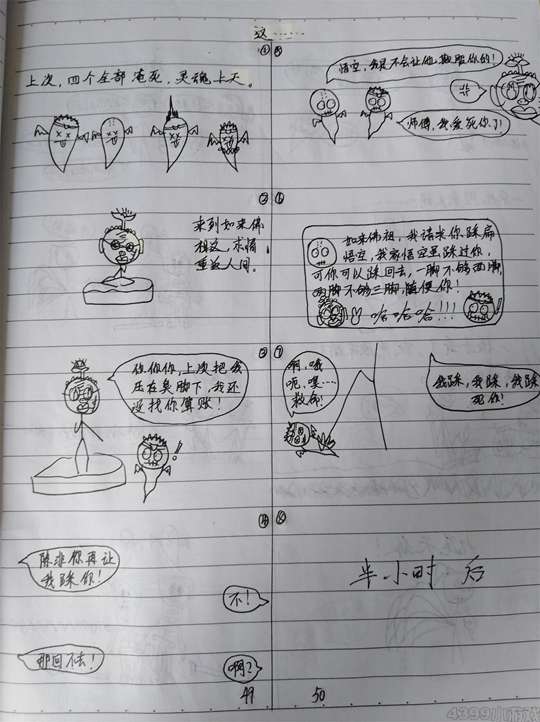 这……
①
上次，四个全部淹死，灵魂上天。
②
来到如来佛
祖这，求情
重返人间。
③
你你你，上次把我
压在臭脚下，我还
没找你算账！
!!
④
除非你再让
我踩你！
不！
那回不去！
啊？
49
⑤
悟空，我是不会让他欺负你的！
哉
师傅，我爱死你了！
⑥
如来佛祖，我请求你踩扁
悟空，我离悟空黑踩过你，
可你可以踩回去，一脚不够两脚
两脚不够三脚，随便你！
哈哈哈哈!!!
⑦
啊，哦
呃，嘿…
救命！
我踩，我踩，我踩
死你！
⑧
半小时后
50
4399小游戏